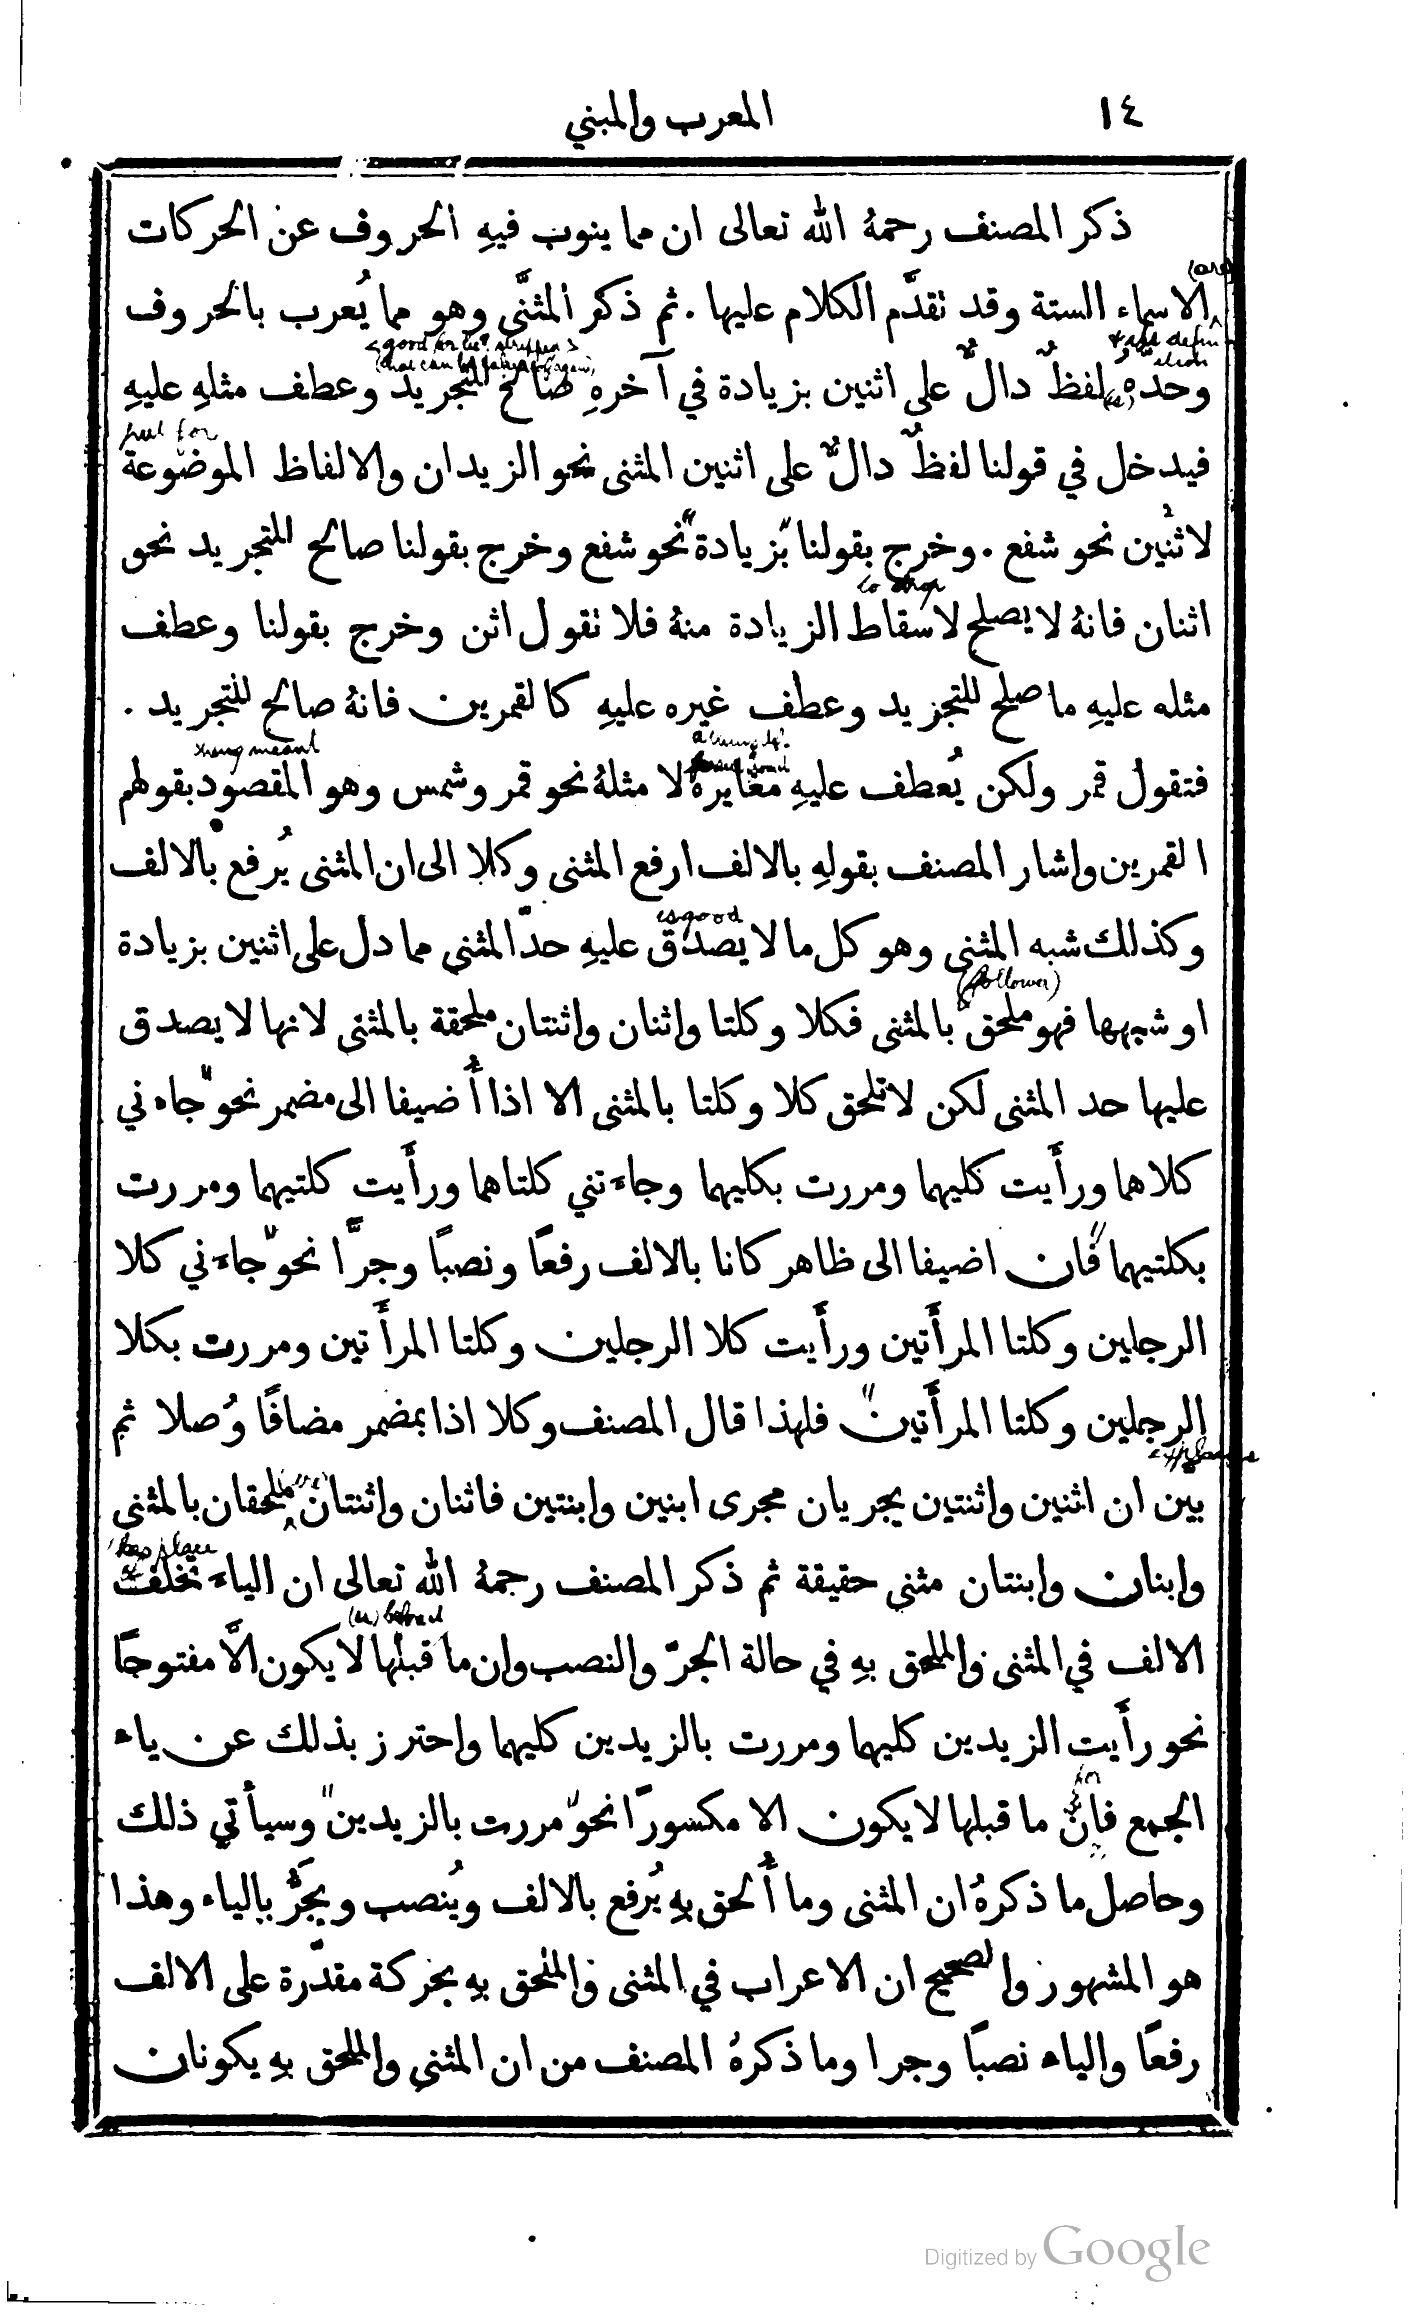 ١٤ المعرب والمبني
ذكر المصنف رحمهُ الله تعالى ان مما ينوب فيهِ الحروف عن الحركات
(are)
الاسماء الستة وقد تقدَّم الكلام عليها . ثم ذكر المثنَّى وهو مما يُعرب بالحروف
وحده لفظٌ دالٌّ على اثنين بزيادة في آخرهِ صالح للتجريد وعطف مثلهِ عليهِ
put for
فيدخل في قولنا لفظٌ دالٌّ على اثنين المثنى نحو الزيدان والالفاظ الموضوعة
لاثنين نحو شفع . وخرج بقولنا "بزيادة" نحو شفع وخرج بقولنا صالح للتجريد نحو
to drop
اثنان فانهُ لا يصلح لاسقاط الزيادة منهُ فلا تقول اثن وخرج بقولنا وعطف
مثله عليهِ ما صلح للتجريد وعطف غيره عليهِ كالقمرين فانهُ صالح للتجريد .
thing meant
فتقول قمر ولكن يُعطف عليهِ مغايرهُ لا مثلهُ نحو قمر وشمس وهو المقصود بقولهم
القمرين واشار المصنف بقولهِ بالالف ارفع المثنى وكلا الى ان المثنى يُرفع بالالف
is good
وكذلك شبه المثنى وهو كل ما لا يصدق عليهِ حدّ المثنى مما دل على اثنين بزيادة
(follower)
او شبهها فهو ملحق بالمثنى فكلا وكلتا واثنان واثنتان ملحقة بالمثنى لانها لا يصدق
عليها حد المثنى لكن لا تلحق كلا وكلتا بالمثنى الا اذا أُضيفا الى مضمر نحو "جاءني
كلاهما ورأَيت كليهما ومررت بكليهما وجاءَتني كلتاهما ورأَيت كلتيهما ومررت
بكلتيهما" فان اضيفا الى ظاهر كانا بالالف رفعًا ونصبًا وجرًّا نحو "جاءَني كلا
الرجلين وكلتا المرأَتين ورأَيت كلا الرجلين وكلتا المرأَتين ومررت بكلا
الرجلين وكلتا المرأَتين" فلهذا قال المصنف وكلا اذا بمضمر مضافًا وُصلا ثم
بين ان اثنين واثنتين يجريان مجرى ابنين وابنتين فاثنان واثنتان ملحقان بالمثنى
has place of
وابنان وابنتان مثنى حقيقة ثم ذكر المصنف رحمهُ الله تعالى ان الياءَ تخلف
الالف في المثنى والملحق بهِ في حالة الجرّ والنصب وان ما قبلها لا يكون الَّا مفتوحًا
نحو رأَيت الزيدين كليهما ومررت بالزيدين كليهما واحترز بذلك عن ياء
for
الجمع فانَّ ما قبلها لا يكون الا مكسورًا نحو "مررت بالزيدين" وسيأتي ذلك
وحاصل ما ذكرهُ ان المثنى وما أُلحق بهِ يُرفع بالالف ويُنصب ويجَرُّ بالياء وهذا
هو المشهور والصحيح ان الاعراب في المثنى والملحق بهِ بحركة مقدّرة على الالف
رفعًا والياء نصبًا وجرا وما ذكرهُ المصنف من ان المثنى والملحق بهِ يكونان
Digitized by Google